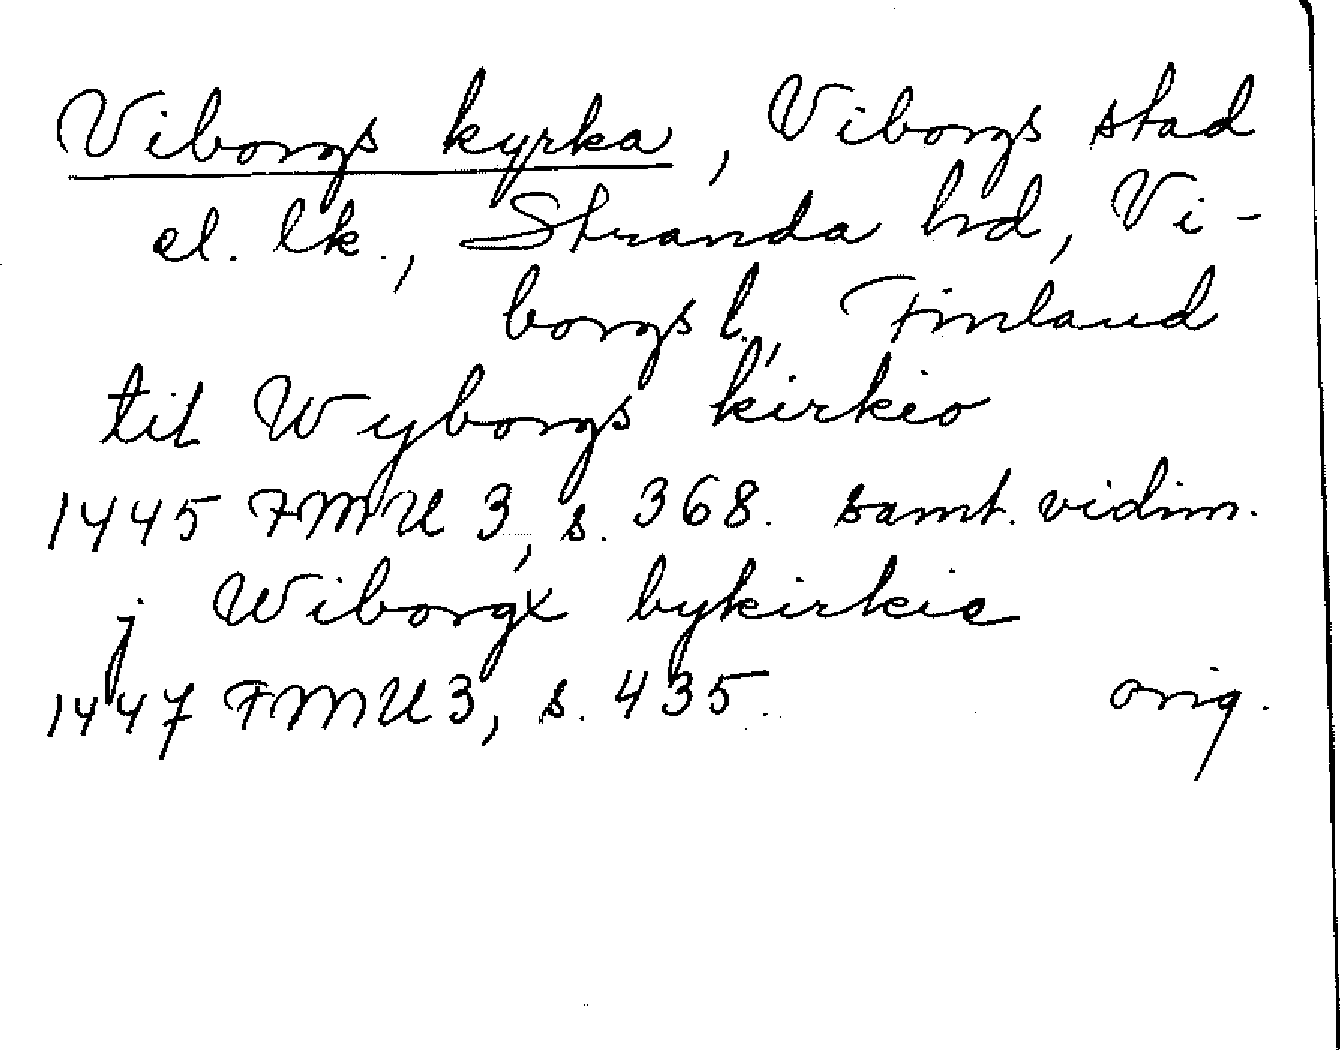 Viborgs kyrka, Viborgs stad
el. lk., Stranda hd, Vi-
borgs l., Finland
til Wyborgs kirkio
1445 FMU 3, s. 368. samt. vidim.
j Wiborgx bykirkie
1447 FMU 3, s. 435. orig.